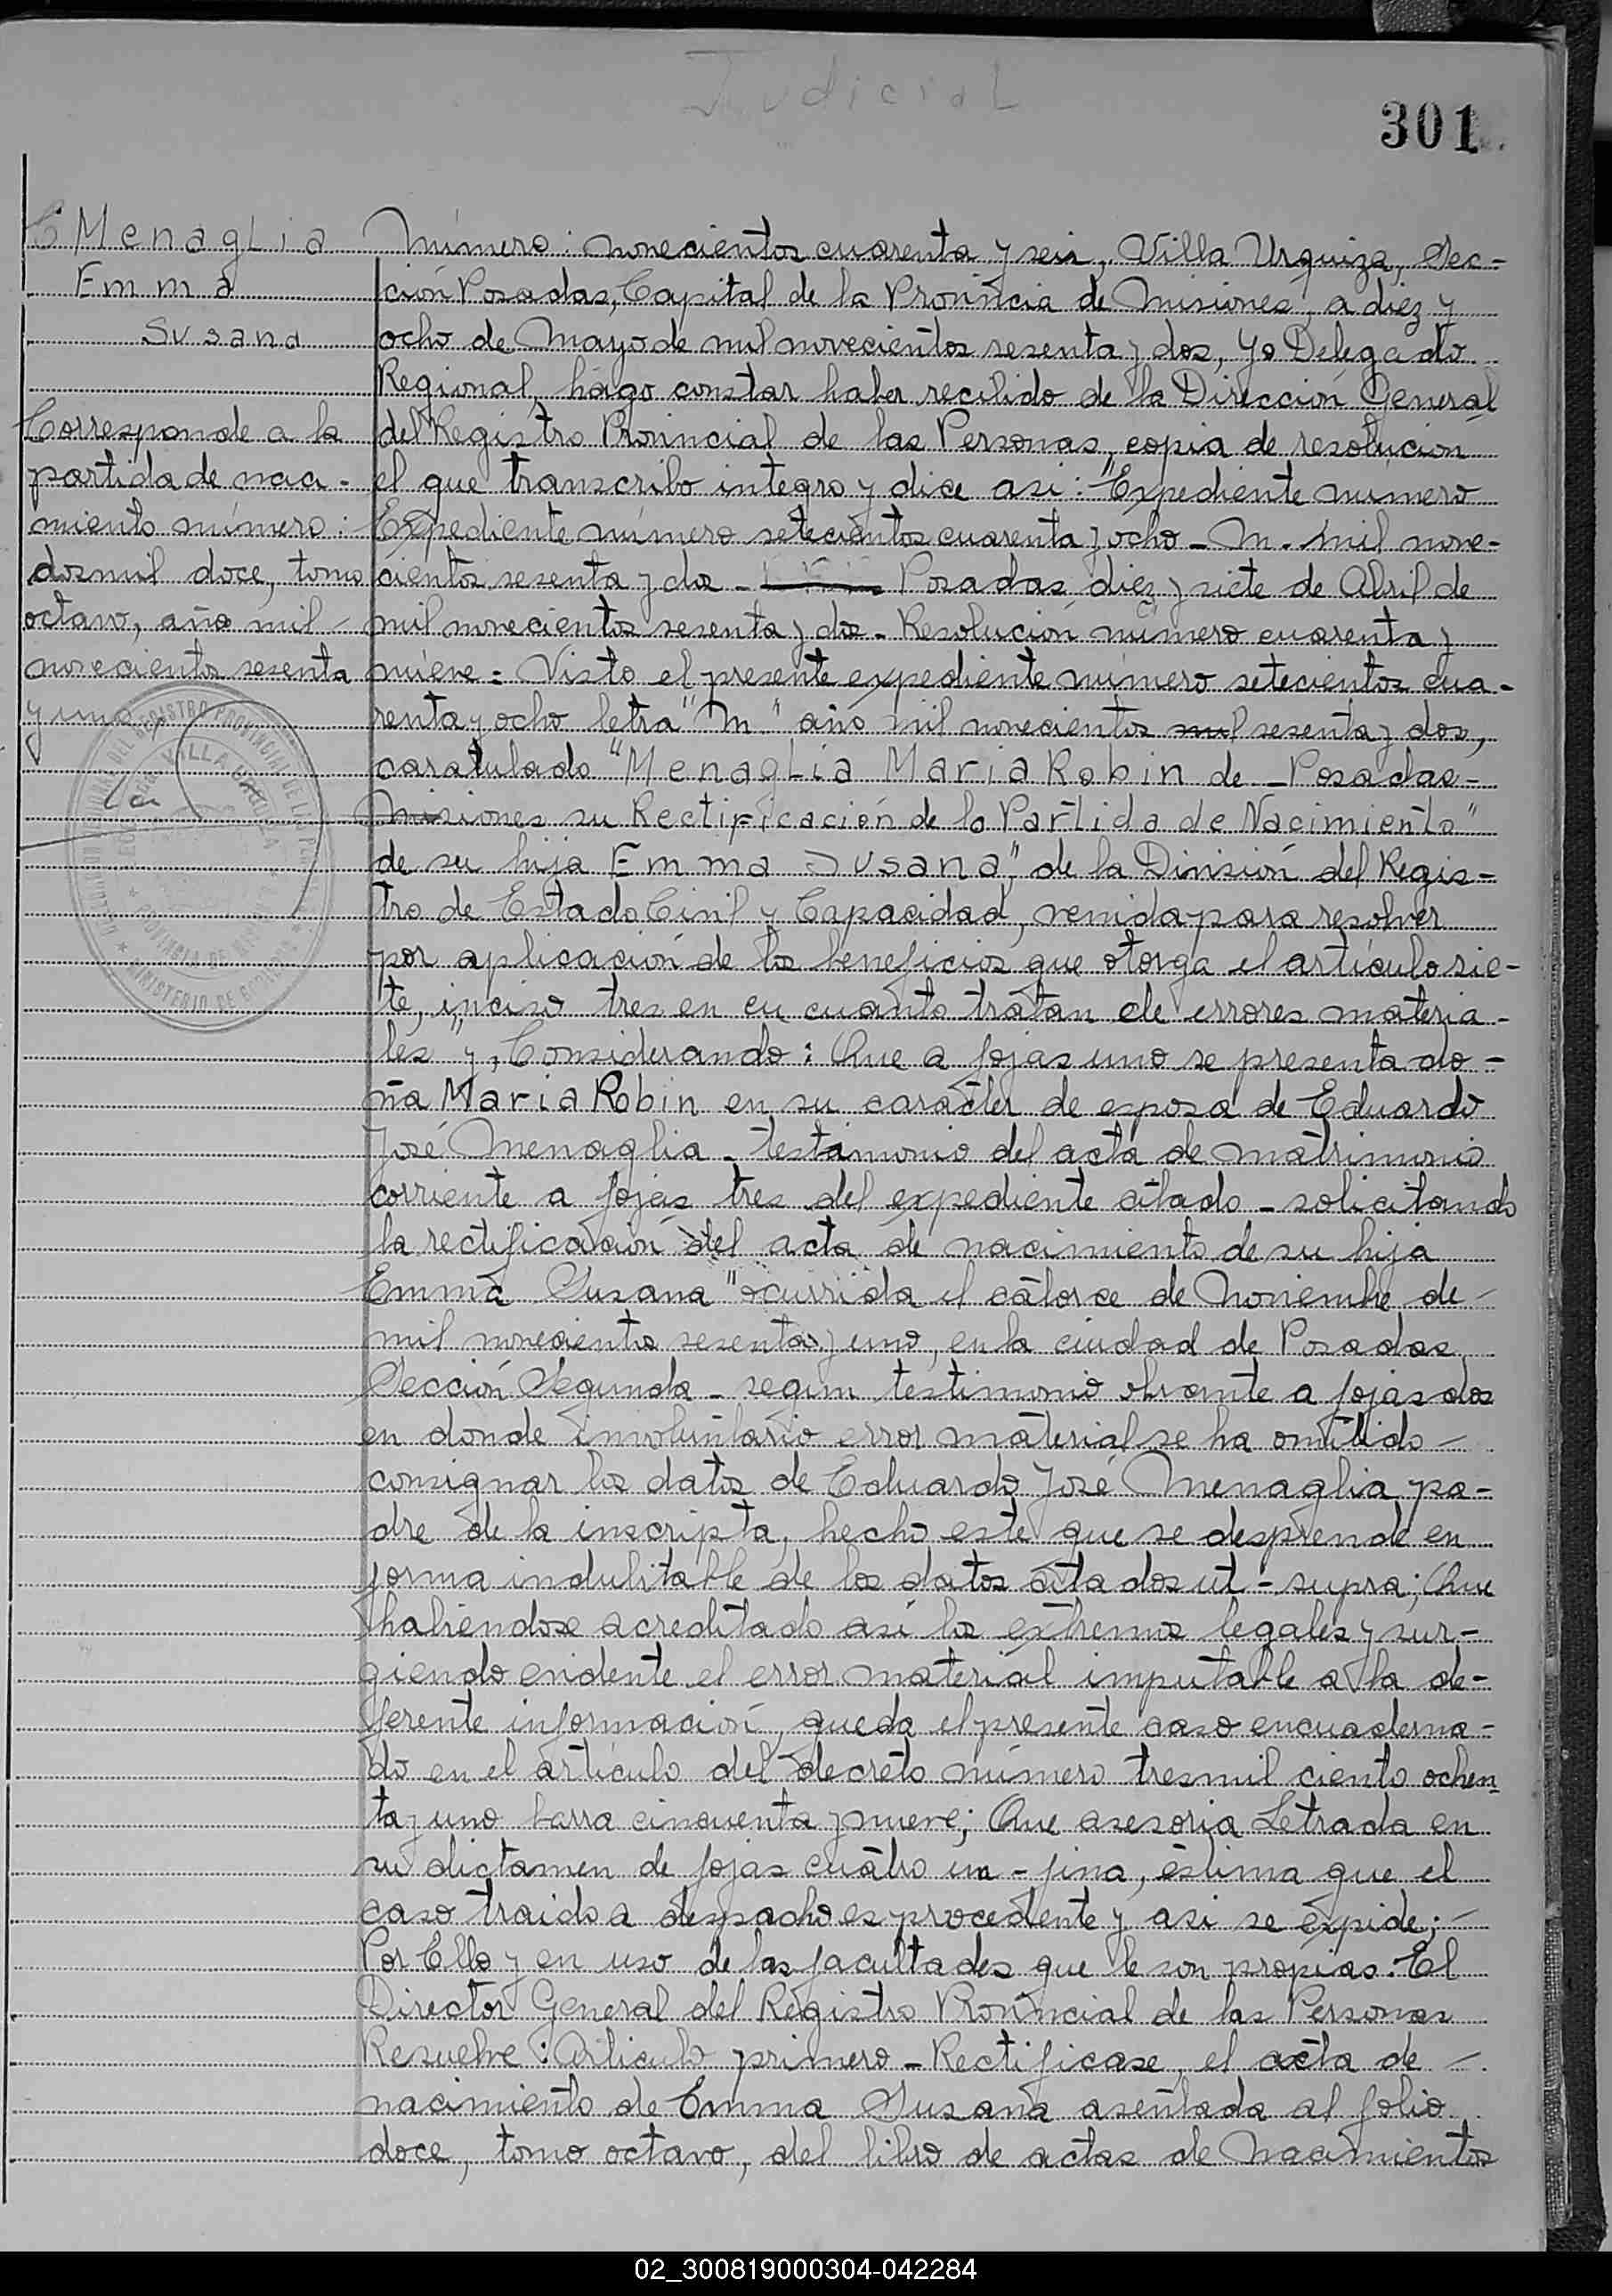 Judicial
301
Menaglia
Emma
Susana
Corresponde a la
partida de naci-
miento número:
dosmil doce, tomo
octavo, año mil -
novecientos sesenta
y uno
VILLA URQUIZA
PROVINCIA DE MISIONES
MINISTERIO DE GOBIERNO
Número: novecientos cuarenta y seis, Villa Urquiza, Sec-
ción Posadas, Capital de la Provincia de Misiones, a diez y
ocho de Mayo de mil novecientos sesenta y dos, yo Delegado
Regional, hago constar haber recibido de la Dirección General
del Registro Provincial de las Personas, copia de resolución
el que transcribo integro y dice asi: "Expediente número
Expediente número setecientos cuarenta y ocho - M. mil nove-
cientos sesenta y dos - Posadas, diez y siete de Abril de
mil novecientos sesenta y dos - Resolución número cuarenta y
nueve = Visto el presente expediente número setecientos cua-
renta y ocho letra "M" año mil novecientos mil sesenta y dos,
caratulado "Menaglia Maria Robin de - Posadas -
Misiones su Rectificación de la Partida de Nacimiento"
de su hija Emma Susana", de la División del Regis-
tro de Estado Civil y Capacidad, venida para resolver
por aplicación de los beneficios que otorga el artículo sie-
te, inciso tres en cu cuanto tratan de errores materia-
les" y, Considerando: Que a fojas uno se presenta do-
ña Maria Robin en su carácter de esposa de Eduardo
José Menaglia - testimonio del acta de matrimonio
corriente a fojas tres del expediente citado - solicitando
la rectificación del acta de nacimiento de su hija
Emma Susana" ocurrida el catorce de Noviembre de -
mil novecientos sesenta y uno, en la ciudad de Posadas
Sección Segunda - segun testimonio obrante a fojas dos
en donde involuntario error material se ha omitido -
consignar los datos de Eduardo José Menaglia pa-
dre de la inscripta, hecho este que se desprende en
forma indubitable de los datos citados ut - supra; Que
habiendose acreditado así los extremos legales y sur-
giendo evidente el error material imputable a la de-
ferente información, queda el presente caso encuaderna-
do en el artículo del decreto número tresmil ciento ochen
ta y uno barra cincuenta y nueve; Que asesoria Letrada en
su dictamen de fojas cuatro in - fina, estima que el
caso traido a despacho es procedente y asi se expide; -
Por Ello y en uso de las facultades que le son propias. El
Director General del Registro Provincial de las Personas
Resuelve: Artículo primero - Rectificase, el acta de -
nacimiento de Emma Susana asentada al folio
doce, tomo octavo, del libro de actas de Nacimientos
02_300819000304-042284